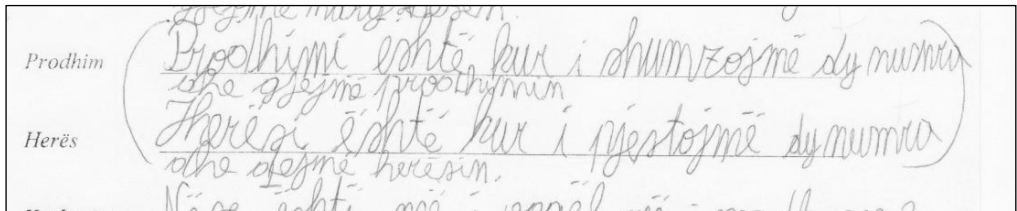 gjejmë
Prodhim Prodhimi eshtë kur i shumzojmë dy numra
dhe gjejmë prodhimin
Herës Herësi është kur i pjestojmë dy numra
dhe gjejmë herësin.
është një i